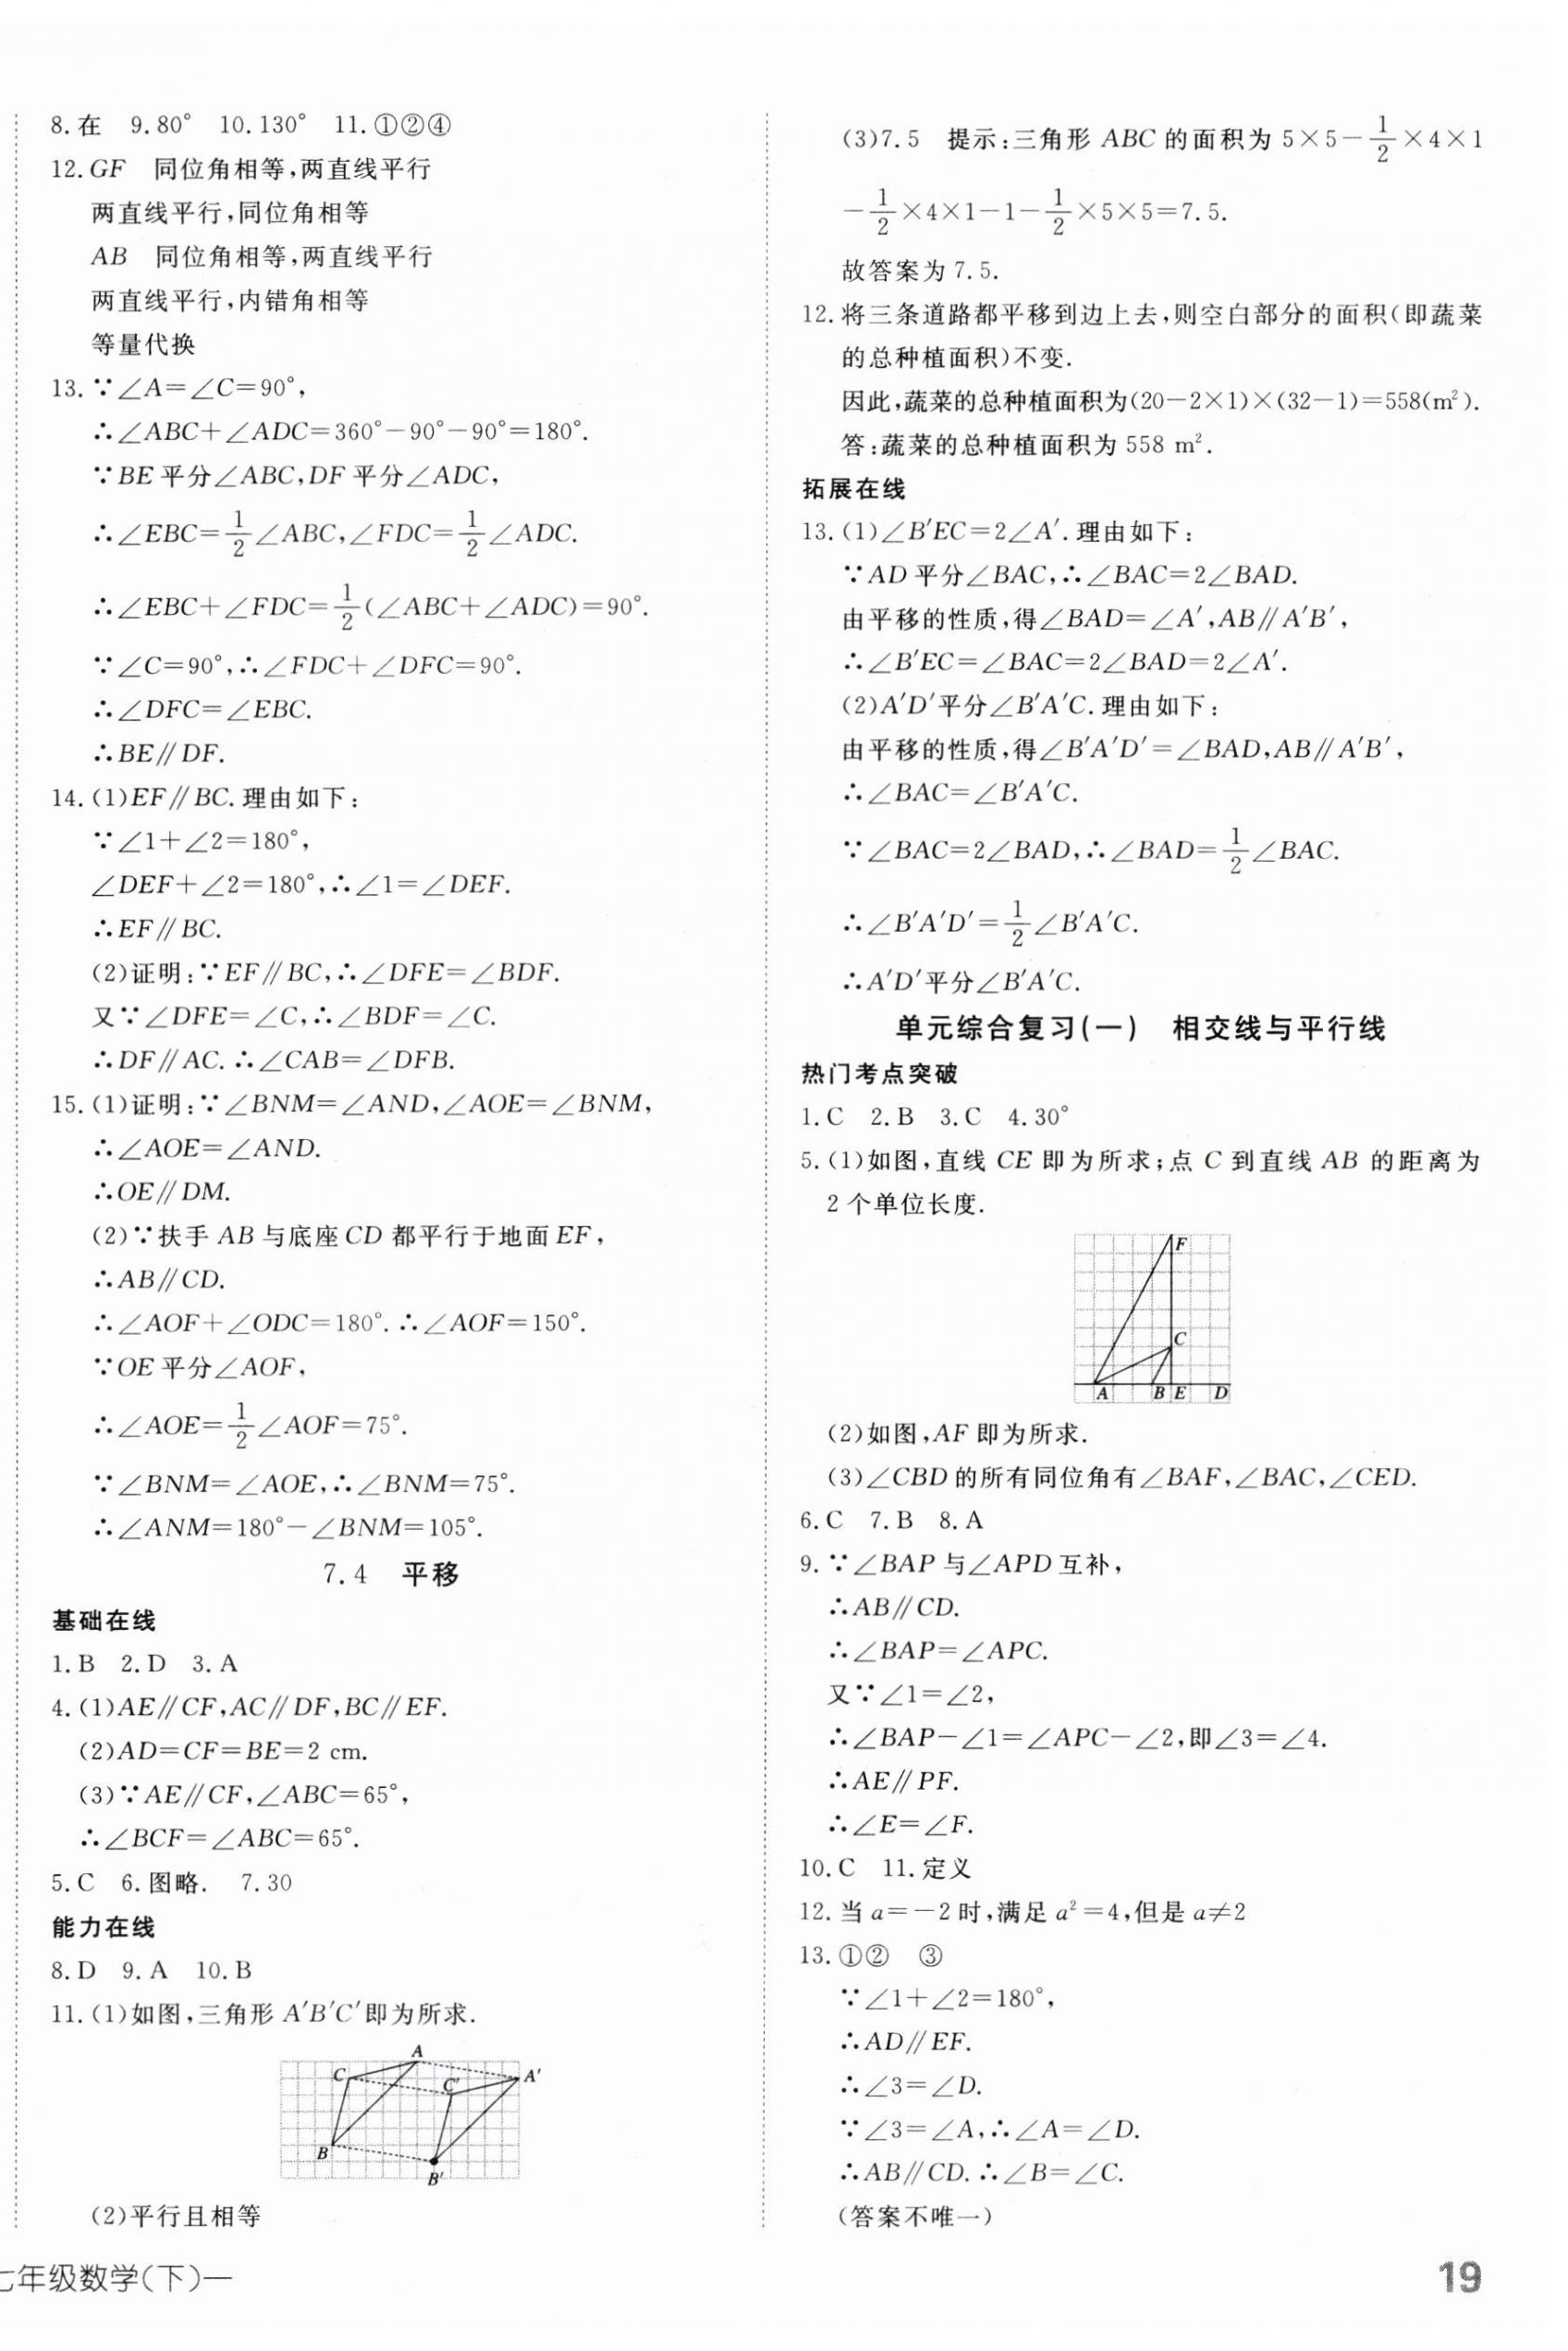 8.在　9.80°　10.130°　11.①②④
12.GF　同位角相等,两直线平行
两直线平行,同位角相等
AB　同位角相等,两直线平行
两直线平行,内错角相等
等量代换
13.∵∠A=∠C=90°,
∴∠ABC+∠ADC=360°-90°-90°=180°.
∵BE平分∠ABC,DF平分∠ADC,
∴∠EBC=1/2∠ABC,∠FDC=1/2∠ADC.
∴∠EBC+∠FDC=1/2(∠ABC+∠ADC)=90°.
∵∠C=90°,∴∠FDC+∠DFC=90°.
∴∠DFC=∠EBC.
∴BE∥DF.
14.(1)EF∥BC.理由如下:
∵∠1+∠2=180°,
∠DEF+∠2=180°,∴∠1=∠DEF.
∴EF∥BC.
(2)证明:∵EF∥BC,∴∠DFE=∠BDF.
又∵∠DFE=∠C,∴∠BDF=∠C.
∴DF∥AC.∴∠CAB=∠DFB.
15.(1)证明:∵∠BNM=∠AND,∠AOE=∠BNM,
∴∠AOE=∠AND.
∴OE∥DM.
(2)∵扶手AB与底座CD都平行于地面EF,
∴AB∥CD.
∴∠AOF+∠ODC=180°.∴∠AOF=150°.
∵OE平分∠AOF,
∴∠AOE=1/2∠AOF=75°.
∵∠BNM=∠AOE,∴∠BNM=75°.
∴∠ANM=180°-∠BNM=105°.
7.4　平移
基础在线
1.B　2.D　3.A
4.(1)AE∥CF,AC∥DF,BC∥EF.
(2)AD=CF=BE=2 cm.
(3)∵AE∥CF,∠ABC=65°,
∴∠BCF=∠ABC=65°.
5.C　6.图略.　7.30
能力在线
8.D　9.A　10.B
11.(1)如图,三角形A′B′C′即为所求.
A
C
C′
A′
B
B′
(2)平行且相等
七年级数学(下)一
(3)7.5　提示:三角形ABC的面积为5×5-1/2×4×1
-1/2×4×1-1-1/2×5×5=7.5.
故答案为7.5.
12.将三条道路都平移到边上去,则空白部分的面积(即蔬菜
的总种植面积)不变.
因此,蔬菜的总种植面积为(20-2×1)×(32-1)=558(m²).
答:蔬菜的总种植面积为558 m².
拓展在线
13.(1)∠B′EC=2∠A′.理由如下:
∵AD平分∠BAC,∴∠BAC=2∠BAD.
由平移的性质,得∠BAD=∠A′,AB∥A′B′,
∴∠B′EC=∠BAC=2∠BAD=2∠A′.
(2)A′D′平分∠B′A′C.理由如下:
由平移的性质,得∠B′A′D′=∠BAD,AB∥A′B′,
∴∠BAC=∠B′A′C.
∵∠BAC=2∠BAD,∴∠BAD=1/2∠BAC.
∴∠B′A′D′=1/2∠B′A′C.
∴A′D′平分∠B′A′C.
单元综合复习(一)　相交线与平行线
热门考点突破
1.C　2.B　3.C　4.30°
5.(1)如图,直线CE即为所求;点C到直线AB的距离为
2个单位长度.
F
C
A B E D
(2)如图,AF即为所求.
(3)∠CBD的所有同位角有∠BAF,∠BAC,∠CED.
6.C　7.B　8.A
9.∵∠BAP与∠APD互补,
∴AB∥CD.
∴∠BAP=∠APC.
又∵∠1=∠2,
∴∠BAP-∠1=∠APC-∠2,即∠3=∠4.
∴AE∥PF.
∴∠E=∠F.
10.C　11.定义
12.当a=-2时,满足a²=4,但是a≠2
13.①②　③
∵∠1+∠2=180°,
∴AD∥EF.
∴∠3=∠D.
∵∠3=∠A,∴∠A=∠D.
∴AB∥CD.∴∠B=∠C.
(答案不唯一)
19